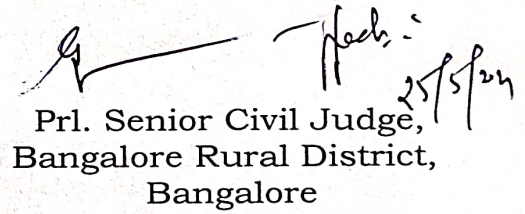 Prl. Senior Civil Judge,
Bangalore Rural District,
Bangalore